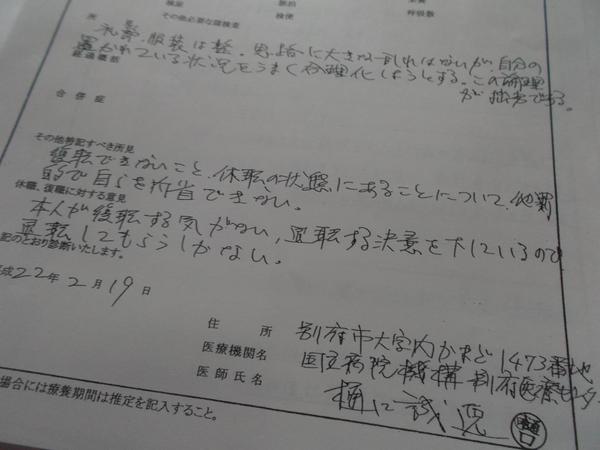 検証 脈拍 呼吸数
その他必要な諸検査 検便
所 礼容・服装は整。思路に大きな乱れはないが、自分の
置かれている状況をうまく合理化しようとする。この論理
経過概要
が拙劣である。
合併症
その他特記すべき所見
復職できないこと、休職の状態にあることについて、他罰
的で自らを内省できない。
休職、復職に対する意見
本人が復職する気がない、退職する決意を下しているので
退職してもらうしかない。
記のとおり診断いたします。
平成22年2月19日
住所 別府市大字内かまど1473番地
医療機関名 国立病院機構別府医療センター
医師氏名 樋口
樋口
場合には療養期間は推定を記入すること。